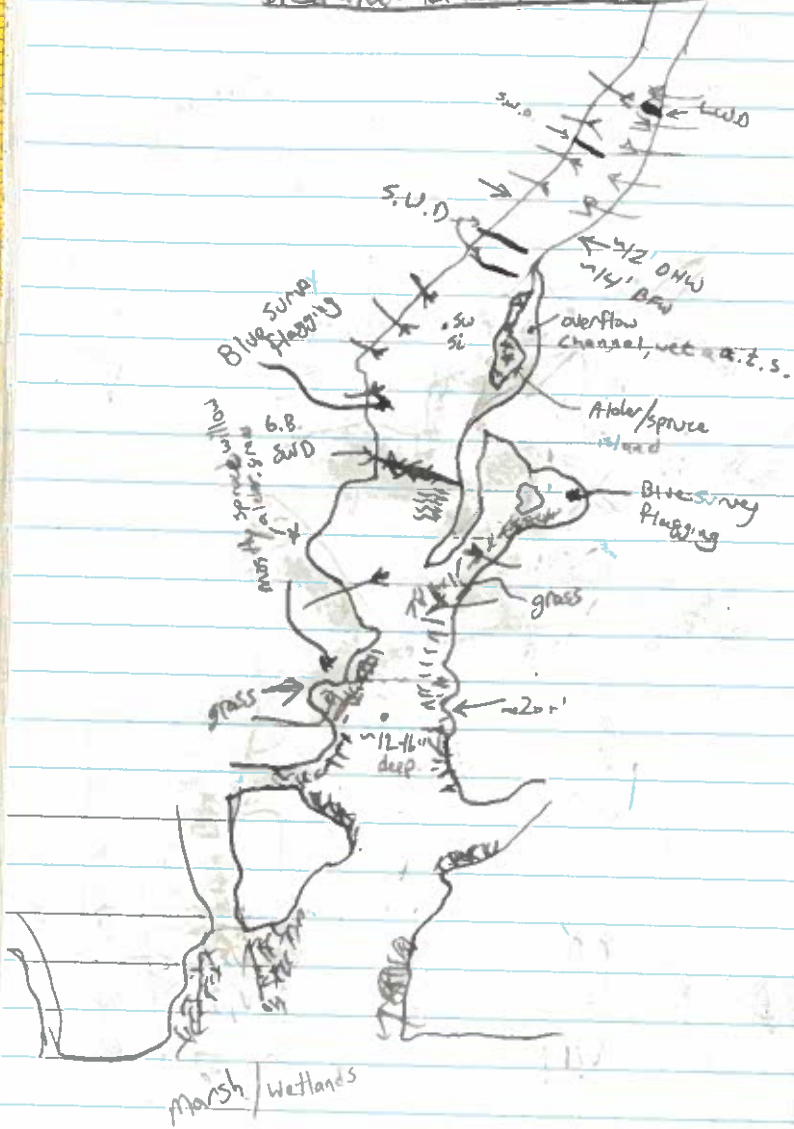 S.W.D
L.W.D
S.W.D
~12' OHW
~14' BFW
Blue Survey
flagging
.SW
Si
overflow
channel, wet a.t.s.
Alder/spruce
island
6.B.
SWD
mostly alder, some
spruce, willow
Blue Survey
flagging
grass
grass
~12-16"
deep
Marsh / Wetlands